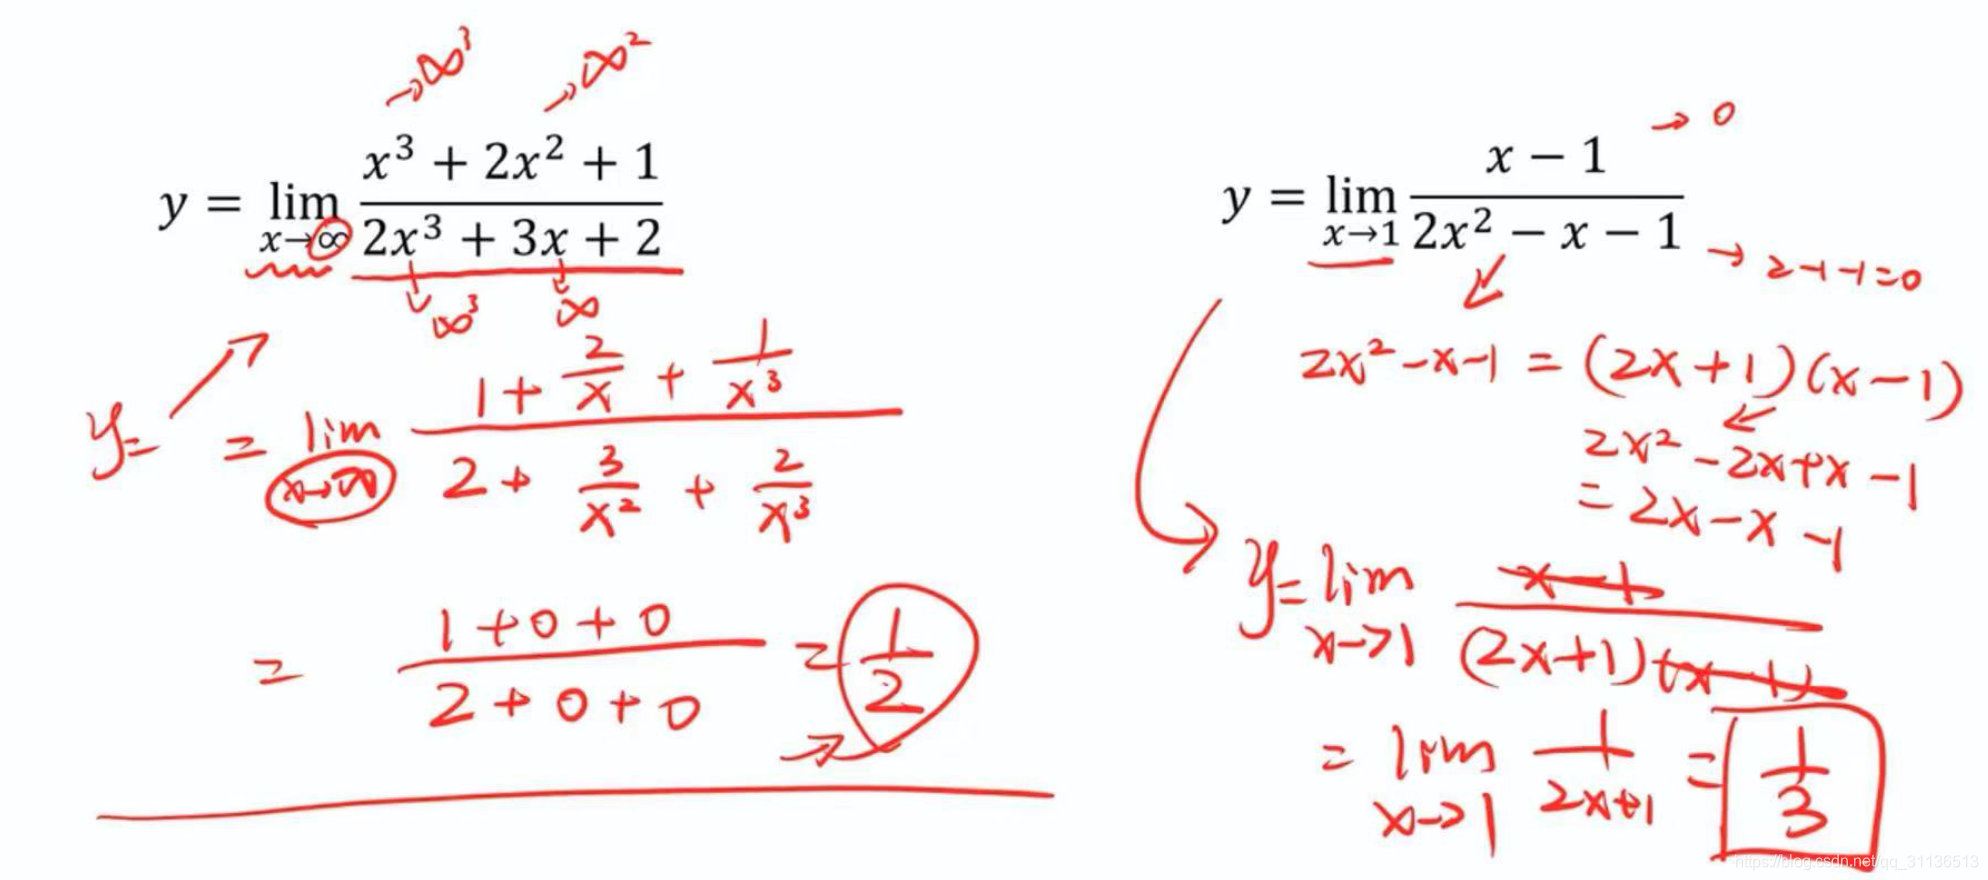 →∞³ →∞²
y = lim x→∞ (x³ + 2x² + 1)/(2x³ + 3x + 2)
↓∞³ ↓∞
y=
= lim x→∞ (1 + 2/x + 1/x³)/(2 + 3/x² + 2/x³)
= (1+0+0)/(2+0+0) = 1/2
→ 0
y = lim x→1 (x − 1)/(2x² − x − 1)
→ 2-1-1=0
2x²-x-1 = (2x+1)(x-1)
2x²-2x+x-1
= 2x-x-1
y= lim x→1 (x-1)/((2x+1)(x-1))
= lim x→1 1/(2x+1) = 1/3
https://blog.csdn.net/qq_31136513